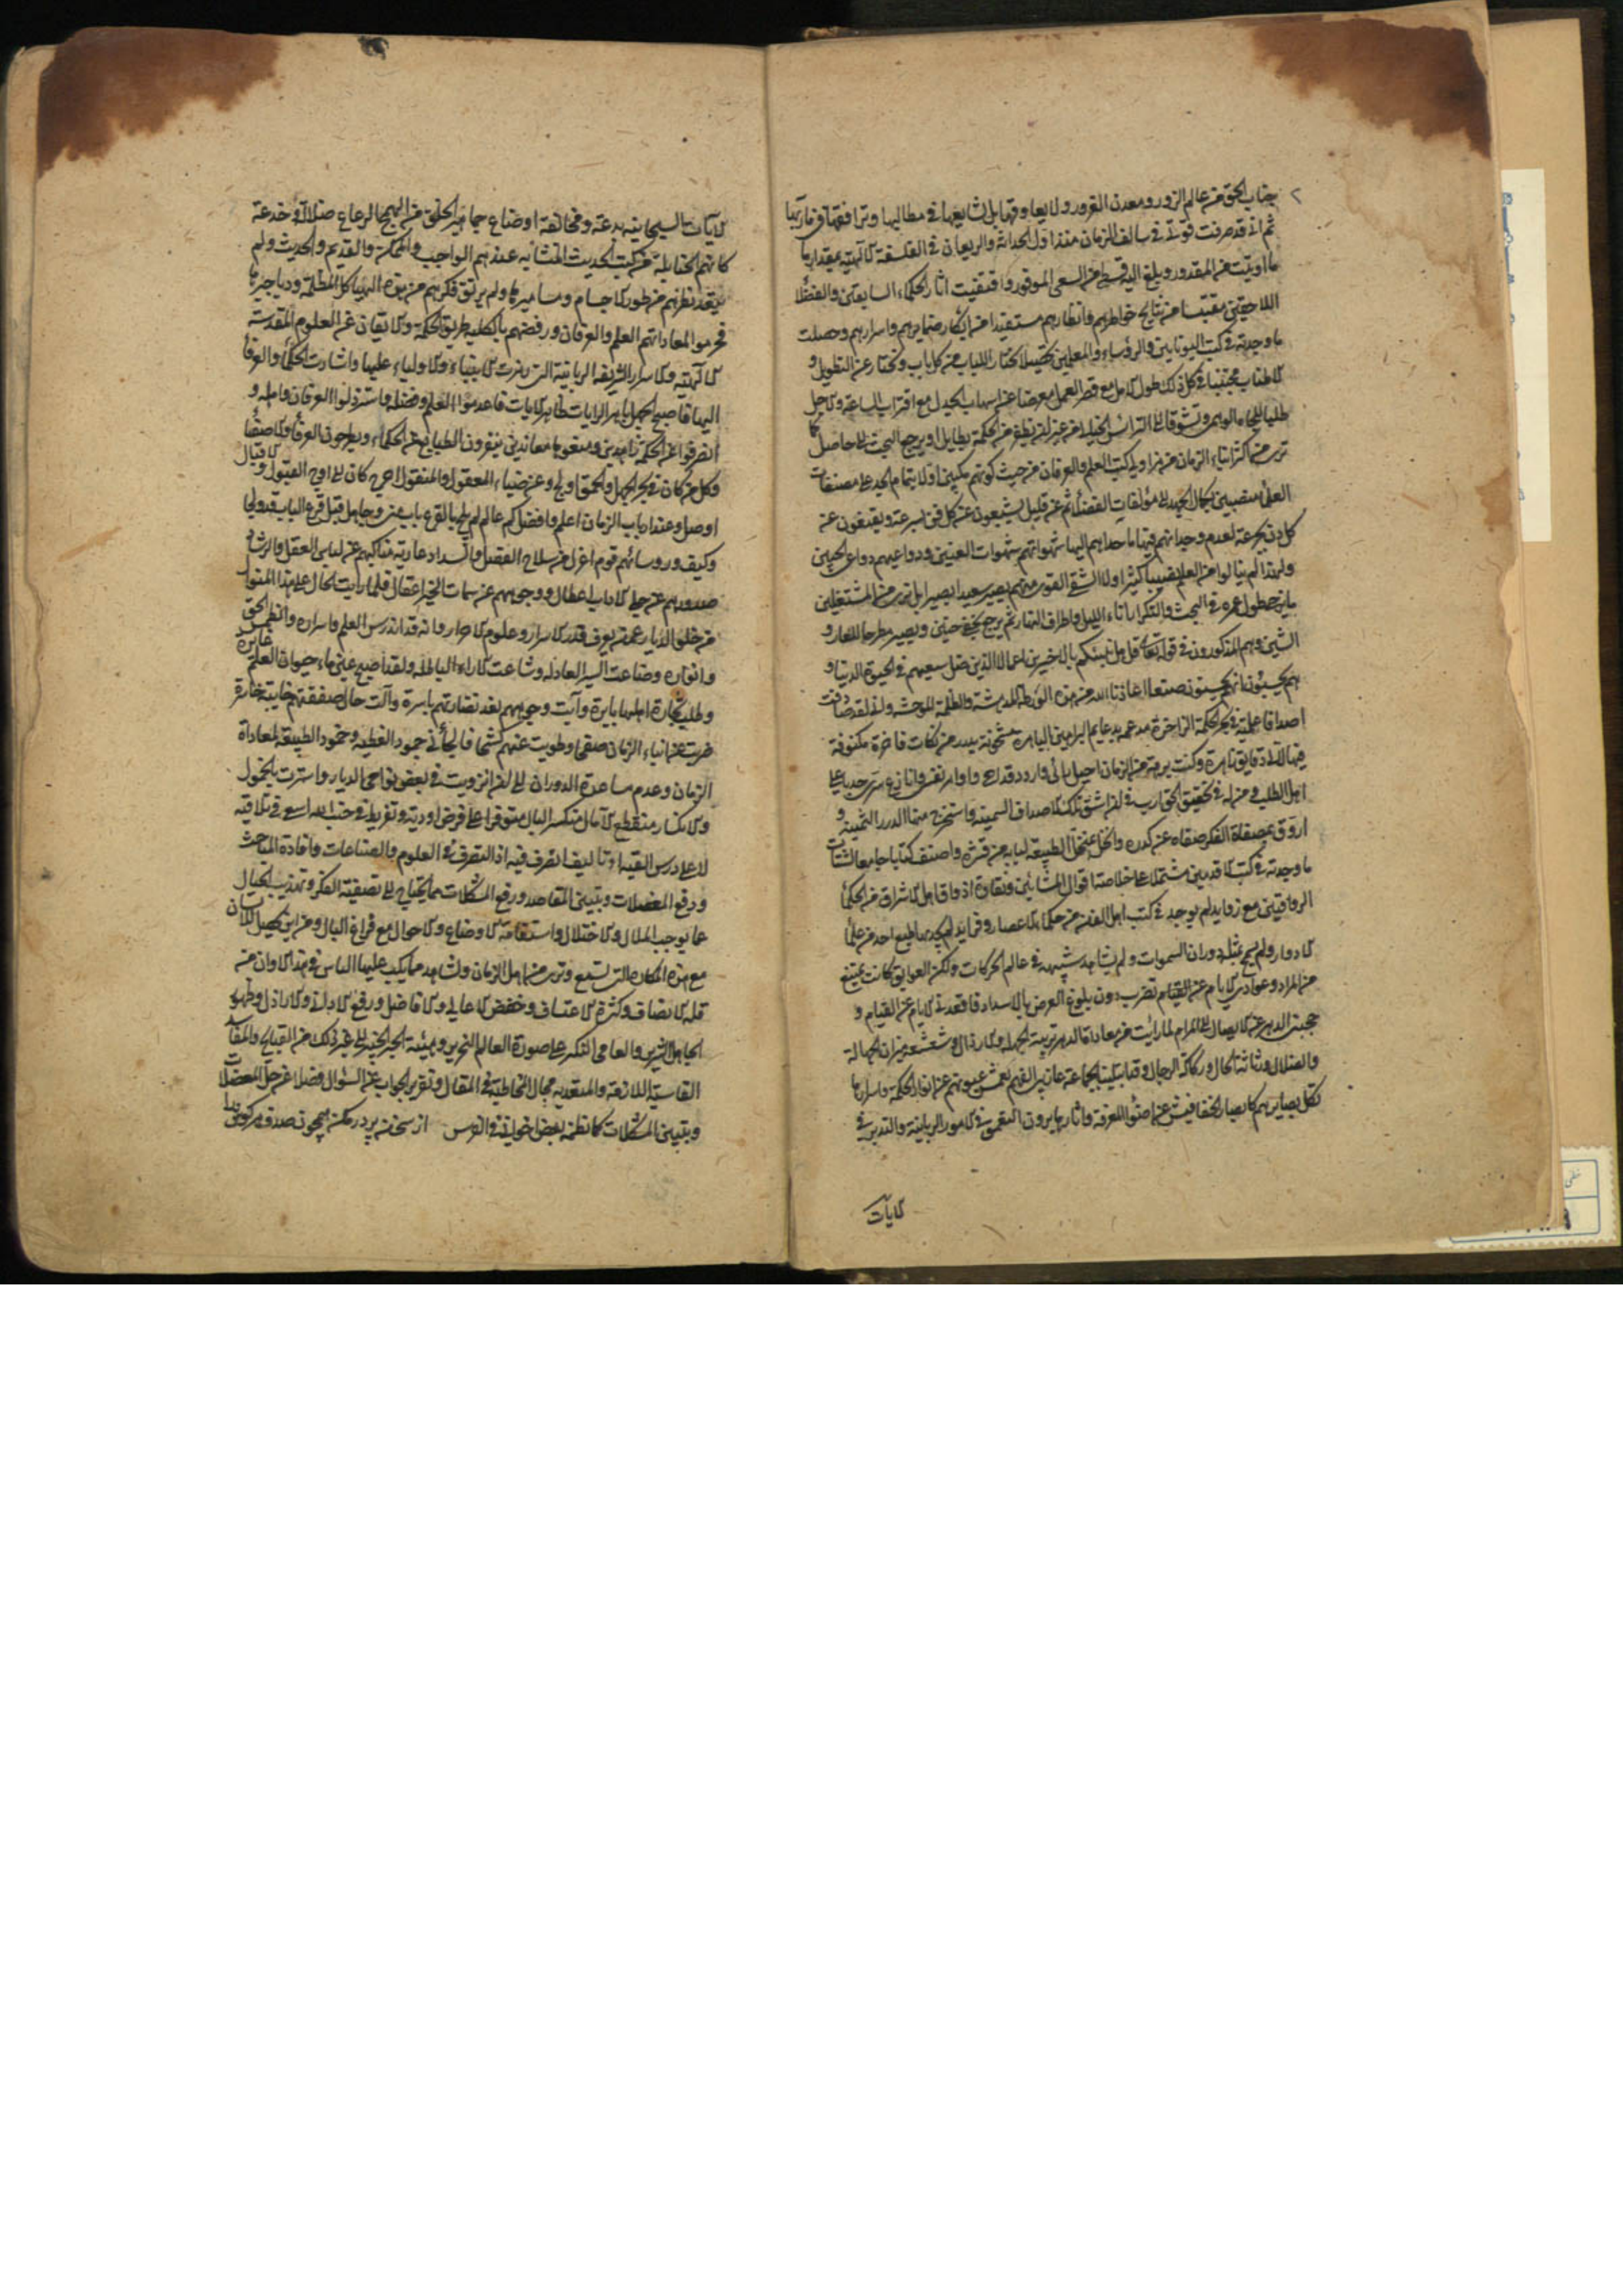 جناب الحق من عالم الزور ومعدن الغرور ولا يعاوقها بل يشايعها في مطالبها ويرافقها في مآربها
ثم اني قد صرفت قوتي في سالف الزمان منذ اول الحداثة والريعان في الفلسفة الالهية بمقدار ما
ما اوتيت من المقدور وبلغ اليه قسطي من السعي الموفور واقتفيت اثار الحكماء السابقين والفضلا
اللاحقين مقتبسا من نتايج خواطرهم وانظارهم مستفيدا من ابكار ضمايرهم واسرارهم وحصلت
ما وجدته في كتب اليونانيين والرؤساء والمعلمين تحصيلا يختار اللباب من كل باب ويجتاز عن التطويل و
الاطناب مجتنبا في كل ذلك طول الامل مع قصر العمل معرضا عن اسهاب الجدل مع اقتراب الساعة والاجل
طلبا للجاه الوهمي وتشوقا الى التراس الخيالي من غير ان يظفر من الحكمة بطايل او يرجع البحث الى حاصل كما
ترى من اكثر ابناء الزمان من مزاولي كتب العلم والعرفان من حيث كونهم منكبين اولا بتمام الجد على مصنفات
العلما منصبين بكمال الجد الى مؤلفات الفضلا ثم عن قليل يشبعون عن كل فن بسرعة ويقنعون عن
كل دن بجرعة لعدم وجدانهم فيها ما حداهم اليها شهواتهم شهوات العنين ودواعيهم دواعي الجنين
ولهذا لم ينالوا من العلم نصيبا كثيرا ولا الشقي الغوي منهم يصير سعيدا بصيرا بل ترى من المشتغلين
ما يزجي طول عمره في البحث والتكرار اناء الليل واطراف النهار ثم يرجع بخفي حنين ويصير مطرحا للعار و
الشين وهم المذكورون في قوله تعالى قل هل ننبئكم بالاخسرين اعمالا الذين ضل سعيهم في الحيوة الدنيا و
هم يحسبون انهم يحسنون صنعا اعاذنا الله من هذه الورطة المدهشة والظلمة الموحشة واني لقد صادفت
اصدافا علمية في بحر الحكمة الزاخرة مدعمة بدعايم البراهين الباهرة مشحونة بدرر من نكات فاخرة مكنونة
فيها لآلي دقايق زاهرة وكنت برهة من الزمان اجيل رائي واردد قداحي واوامر نفسي وانازع سري حدبا على
اهل الطلب ومن له في تحقيق الحق ارب في ان اشق تلك الاصداف السمينة واستخرج منها الدرر الثمينة و
اروق بمصفاة الفكر صفاه عن كدره وانخل بمنخل الطبيعة لبابه عن قشره واصنف كتابا جامعا لشتات
ما وجدته في كتب الاقدمين مشتملا على خلاصة اقوال المشائين ونقاوة اذواق اهل الاشراق من الحكما
الرواقيين مع زوايد لم يوجد في كتب اهل الفن من حكماء الاعصار وفرايد لم يجد بها طبع احد من علما
الادوار ولم يسمح بمثله دوران السموات ولم يشاهد شبهه في عالم الحركات ولكن العوايق كانت تمنع
من المراد وعوادي الايام عن القيام تضرب دون بلوغ الغرض بالاسداد فاقعدني الايام عن القيام و
حجبني الدهر عن الايصال الى المرام لما رايت من معاداة الدهر تربية الجهلة والارذال وشعشعة نيران الجهالة
والضلال ورثاثة الحال وركاكة الرجال وقد ابتلينا بجماعة غاربي الفهم تعمش عيونهم عن انوار الحكمة واسرارها
تكل بصايرهم كابصار الخفافيش عن اضواء المعرفة واثارها يرون التعمق في الامور الربانية والتدبر في
الايات
الايات السبحانية بدعة ومخالفة اوضاع جماهير الخلق من الهمج الرعاع ضلالة وخدعة
كانهم الحنابلة من كتب الحديث المتشابه عندهم الواجب والممكن والقديم والحديث ولم
يتعد نظرهم من طور الاجسام ومساميرها ولم يرتق فكرهم عن هذه الهياكل المظلمة ودياجيرها
فحرموا لمعاداتهم العلم والعرفان ورفضهم بالكلية طريق الحكمة والايقان عن العلوم المقدسة
الالهية والاسرار الشريفة الربانية التي رمزت الانبياء والاولياء عليها واشارت الحكما والعرفا
اليها فاصبح الجهل باهر الرايات ظاهر الايات فاعدموا العلم وفضله واسترذلوا العرفان واهله و
انصرفوا عن الحكمة زاهدين ومنعوها معاندين ينفرون الطباع عن الحكماء ويطرحون العرفا والاصفيا
وكل من كان في بحر الجهل والحمق اولج وعن ضياء المعقول والمنقول اخرج كان الى اوج القبول والاقبال
اوصل وعند ارباب الزمان اعلم وافضل كم عالم لم يلج بالقرع باب منى وجاهل قبل قرع الباب قد ولجا
وكيف ورؤسائهم قوم اعزل من سلاح الفضل والسداد عارية مناكبهم عن لباس العقل والرشاد
صدورهم عن حلي الاداب اعطال ووجوههم عن سمات الخير اغفال فلما رايت الحال على هذا المنوال
من خلو الديار عمن يعرف قدر الاسرار وعلوم الاحرار وانه قد اندرس العلم واسراره وانطمس الحق
وانواره وضاعت السير العادلة وشاعت الاراء الباطلة ولقد اصبح عين ماء حيوان العلم غايرة
وظلت تجارة اهلها بايرة وآبت وجوههم بعد نضارتهم باسرة وآلت حال صفقتهم خايبة خاسرة
ضربت عن ابناء الزمان صفحا وطويت عنهم كشحا فالجأني خمود الفطنة وجمود الطبيعة لمعاداة
الزمان وعدم مساعدة الدوران الى ان انزويت في بعض نواحي الديار واستترت بالخمول
والانكسار منقطع الامال منكسر البال متوفرا على فرض اؤديه وتفريط في جنب الله اسعى في تلافيه
لا على درس القيه او تاليف اتصرف فيه اذ التصرف في العلوم والصناعات وافادة المباحث
ودفع المعضلات وتبيين المقاصد ورفع المشكلات مما يحتاج الى تصفية الفكر وتهذيب الخيال
عما يوجب الملال والاختلال واستقامة الاوضاع والاحوال مع فراغ البال ومن اين يحصل للانسان
مع هذه المكاره التي تسمع وترى من اهل الزمان ونشاهد مما يكب عليها الناس في هذا الاوان من
قلة الانصاف وكثرة الاعتساف وخفض الاعالي والافاضل ورفع الاداني والاراذل وظهور
الجاهل الشرير والعامي النكير على صورة العالم النحرير وهيئة الحبر الخبير الى غير ذلك من القبايح والمفاسد
الفاسية اللازمة والمتعدية مجال المخاطبة في المقال وتقرير الجواب عن السؤال فضلا عن حل المعضلات
وتبيين المشكلات كما نظمه بعض اخواني في الفرس از سخن پر در مكن همچون صدف هر گوش را